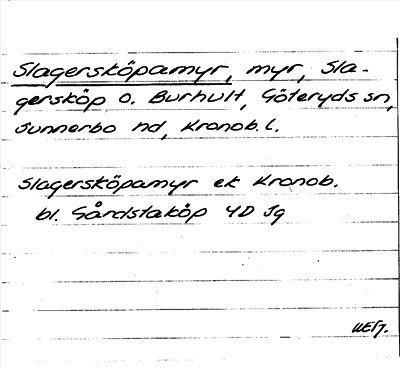 Slagersköpamyr, myr, Sla-
gersköp o. Burhult, Göteryds sn,
Sunnerbo hd, Kronob. l.
Slagersköpamyr ek Kronob.
bl. Gårdstaköp 4D Jg